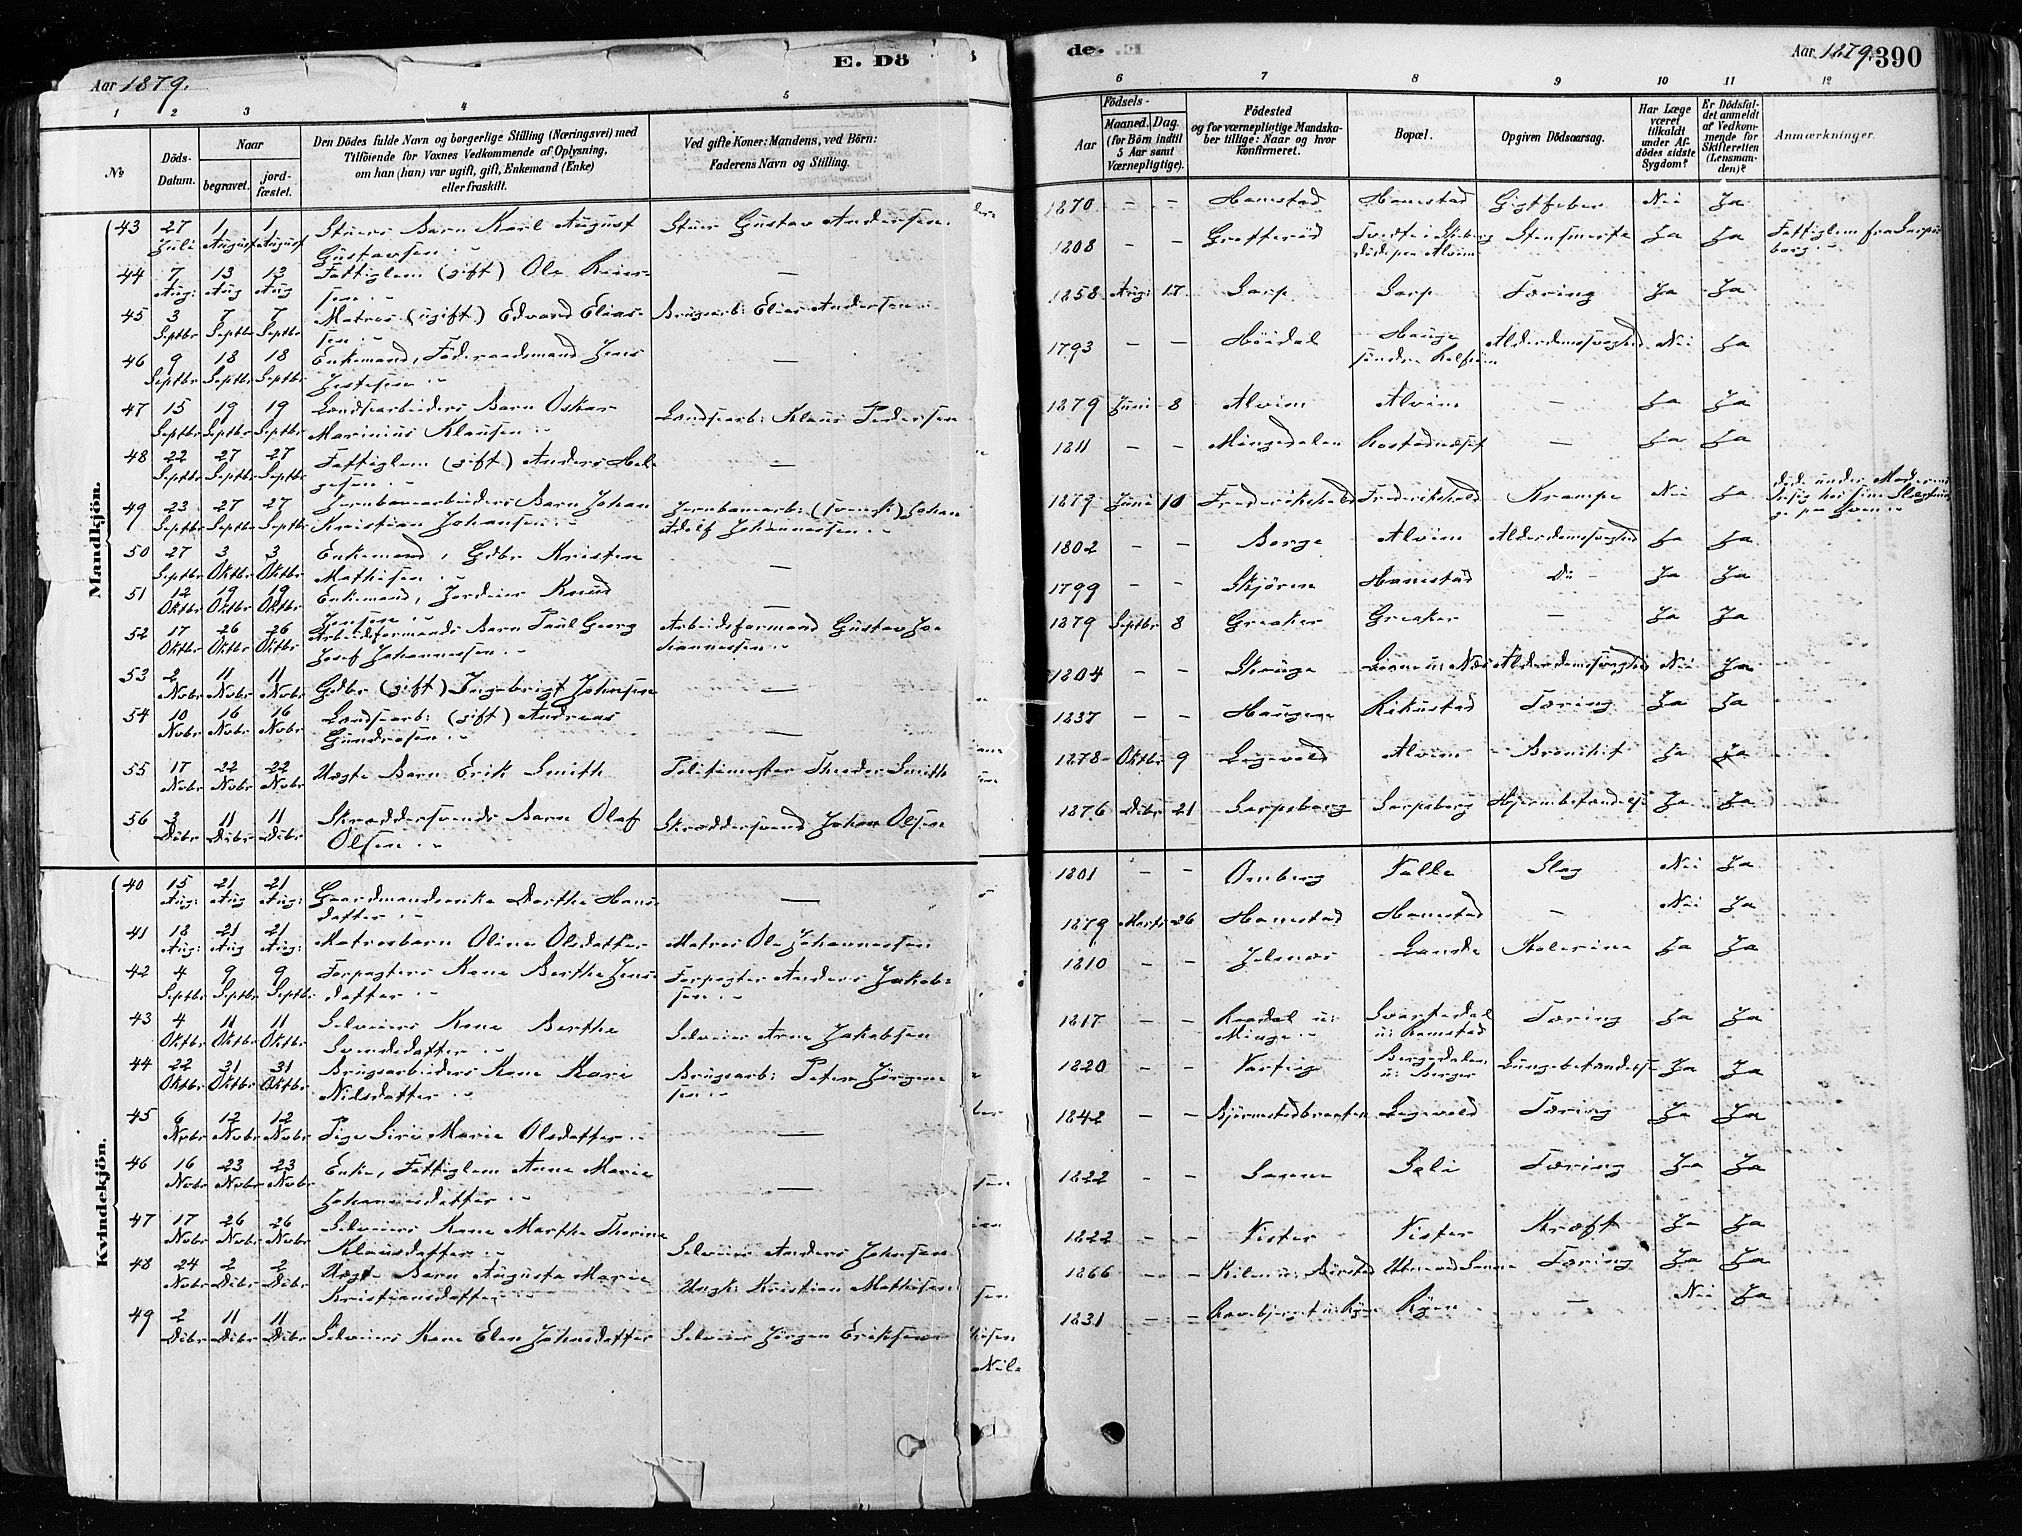 Aar 1879.
E. Dö
de.
Aar 1879. 390
1 2 3 4 5
6 7 8 9 10 11 12
No
Döds-Datum.
Naar
begravet. jord-fæstet.
Den Dödes fulde Navn og borgerlige Stilling (Næringsvei) med
Tilföiende for Voxnes Vedkommende af Oplysning,
om han (hun) var ugift, gift, Enkemand (Enke)
eller fraskilt.
Ved gifte Koner: Mandens, ved Börn:
Faderens Navn og Stilling.
Födsels-
Aar
Maaned. Dag.
(for Börn indtil
5 Aar samt
Værnepligtige).
Födested
og for værnepligtige Mandska-
ber tillige: Naar og hvor
konfirmeret.
Bopæl.
Opgiven Dödsaarsag.
Har Læge
været
tilkaldt
under Af-
dödes sidste
Sygdom?
Er Dödsfal-
det anmeldt
af Vedkom-
mende for
Skifteretten
(Lensman-
den)?
Anmærkninger.
Mandkjön.
43 27 Juli 1 August 1 August Stuers Barn Karl August Gustavsen Stuer Gustav Andersen. 1870 - - Hamstad Hamstad Gigtfeber Nei Ja
44 7 Aug: 13 Aug 13 Aug Fattiglem (gift) Ole Reiersen 1808 - - Greften­röd Alvim Ja Ja Fattiglem fra Sarpsborg
45 3 Septbr 7 Septbr 7 Septbr Matros (ugift) Edvard Eliassen Brugsarb: Elias Andersen 1858 Aug: 17 Sarp Sarp Tæring Ja Ja
46 9 Septbr 18 Septbr 18 Septbr Enkemand, Föderaadsmand Jens 1793 - - Höidal Hauge Alderdomssvaghed Nei Ja
47 15 Septbr 19 Septbr 19 Septbr Landsarbeiders Barn Oskar Marinius Klausen Landsarb: Klaus Pedersen 1879 Juni 8 Alvim Alvim - Ja Ja
48 22 Septbr 27 Septbr 27 Septbr Fattiglem (gift) Anders Helgesen 1811 - - Mingedalen - Ja Ja
49 23 Septbr 27 Septbr 27 Septbr Jernbanearbeiders Barn Johan Kristian Johansen Jernbanearb: (svensk) Johan Adolf Johannessen 1879 Juni 10 Frederikshald Frederikshald Krampe Nei Ja
50 27 Septbr 3 Oktbr 3 Oktbr Enkemand, Gdbr Kristen Mathisen 1802 - - Borge Alvim Alderdomssvaghed Ja Ja
51 12 Oktbr 19 Oktbr 19 Oktbr Enkemand, Jordeier Knud Jensen 1799 - - Skjören Hamstad Do - Ja Ja
52 17 Oktbr 26 Oktbr 26 Oktbr Arbeidsformands Barn Paul Georg Josef Johannessen Arbeidsformand Gustav Johannessen 1879 Septbr 8 Greaker Greaker - Ja Ja
53 2 Novbr 11 Novbr 11 Novbr Gdbr (gift) Ingebrigt Johnsen 1804 - - Alderdomssvaghed Nei Ja
54 10 Nobr 16 Nobr 16 Nobr Landsarb: (gift) Andreas Gundersen 1837 - - Haugene Rikustad Tæring Ja Ja
55 17 Nobr 22 Nobr 22 Nobr Uægte Barn Erik Smith Politimester Theodor Smith 1878 Oktbr 9 Legevold Alvim Bronkit Ja Ja
56 3 Debr 11 Debr 11 Debr Skræddersvends Barn Olaf Olsen Skræddersvend Johan Olsen 1876 Debr 21 Sarpsborg Sarpsborg Hjernebetændelse Ja Ja
Kvindekjön.
40 15 Aug: 21 Aug 21 Aug: Gaardmandsenke Dorthe Hansdatter 1801 - - Omberg Valle Slag Nei Ja
41 18 Aug: 21 Aug 21 Aug: Matrosbarn Oline Olsdatter Matros Ole Johannessen 1879 Marts 26 Hamstad Hamstad - Nei Ja
42 4 Septbr 9 Septbr 9 Septbr Forpagters Kone Berthe Jensdatter Forpagter Anders Jakobsen 1810 - - Jelsnes Lande Kolerine Ja Ja
43 4 Oktbr 11 Oktbr 11 Oktbr Selveiers Kone Berthe Svendsdatter Selveier Arne Jakobsen 1817 - - Minge Svartedal u: Hamstad Tæring Ja Ja
44 22 Oktbr 31 Oktbr 31 Oktbr Brugsarbeiders Kone Kari Nilsdatter Brugsarb: Peter Jörgensen 1820 - - Varteig Bergedalen u: Berger Lungebetændelse Ja Ja
45 6 Novbr 12 Novbr 12 Novbr Pige Siri Marie Olsdatter 1842 - - Bjørnstadbraaten Legevold Tæring Ja Ja
46 16 Nobr 23 Nobr 23 Nobr Enke, Fattiglem Anne Marie Johannesdatter 1822 - - Sanne Sali Tæring Ja Ja
47 17 Nobr 26 Nobr 26 Nobr Selveiers Kone Marthe Thorine Klausdatter Selveier Anders Johnsen 1822 - - Vister Vister Kræft Ja Ja
48 24 Nobr 2 Debr 2 Debr Uægte Barn Augusta Marie Kristiansdatter Ungk: Kristian Mathisen 1866 - - Tæring Ja Ja
49 2 Debr 11 Debr 11 Debr Selveiers Kone Elen Johnsdatter Selveier Jörgen Eriksen 1831 - - Ryen - Nei Ja